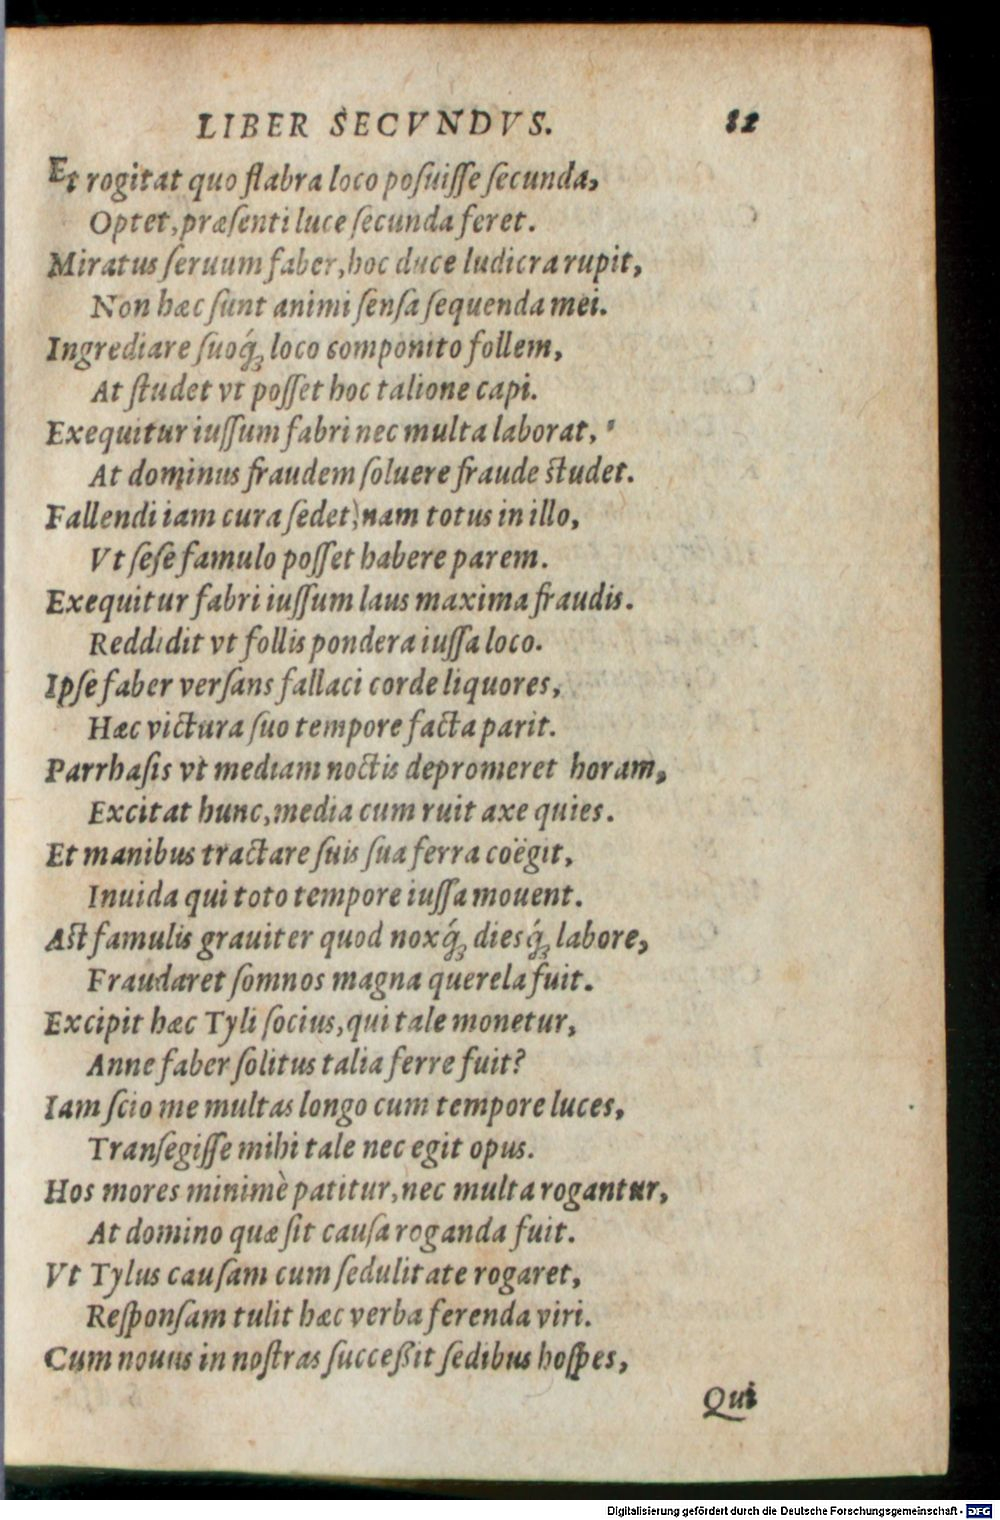 LIBER SECVNDVS. 82
Et rogitat quo flabra loco posuiſſe ſecunda,
Optet, præſenti luce ſecunda feret.
Miratus ſeruum faber, hoc duce ludicra rupit,
Non hæc ſunt animi ſenſa ſequenda mei.
Ingrediare ſuoq́ꝫ loco componito follem,
At ſtudet vt poſſet hoc talione capi.
Exequitur iuſſum fabri nec multa laborat,
At dominus fraudem ſoluere fraude ſtudet.
Fallendi iam cura ſedet, nam totus in illo,
Vt ſeſe famulo poſſet habere parem.
Exequitur fabri iuſſum laus maxima fraudis.
Reddidit vt follis pondera iuſſa loco.
Ipſe faber verſans fallaci corde liquores,
Hæc victura ſuo tempore facta parit.
Parrhaſis vt mediam noctis depromeret horam,
Excitat hunc, media cum ruit axe quies.
Et manibus tractare ſuis ſua ferra coëgit,
Inuida qui toto tempore iuſſa mouent.
Aſt famulis grauiter quod noxq́ꝫ diesq́ꝫ labore,
Fraudaret ſomnos magna querela fuit.
Excipit hæc Tyli ſocius, qui tale monetur,
Anne faber ſolitus talia ferre fuit?
Iam ſcio me multas longo cum tempore luces,
Tranſegiſſe mihi tale nec egit opus.
Hos mores minimè patitur, nec multa rogantur,
At domino quæ ſit cauſa roganda fuit.
Vt Tylus cauſam cum ſedulitate rogaret,
Reſponſam tulit hæc verba ferenda viri.
Cum nouus in noſtras ſucceßit ſedibus hoſpes,
Qui
Digitalisierung gefördert durch die Deutsche Forschungsgemeinschaft - DFG